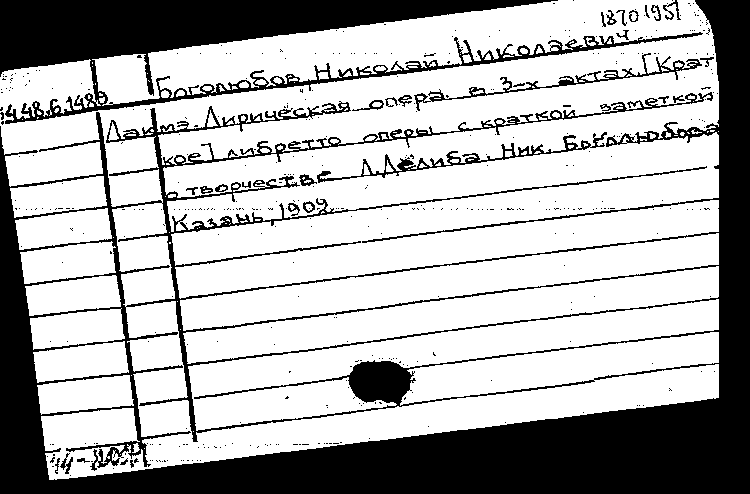 1870 1951
Боголюбов, Николай Николаевич
44.48.6.1489
Лакмэ. Лирическая опера в 3-х актах. [Крат
кое] либретто оперы с краткой заметкой
о творчестве Л. Делиба. Ник. Боголюбова
Казань, 1909.